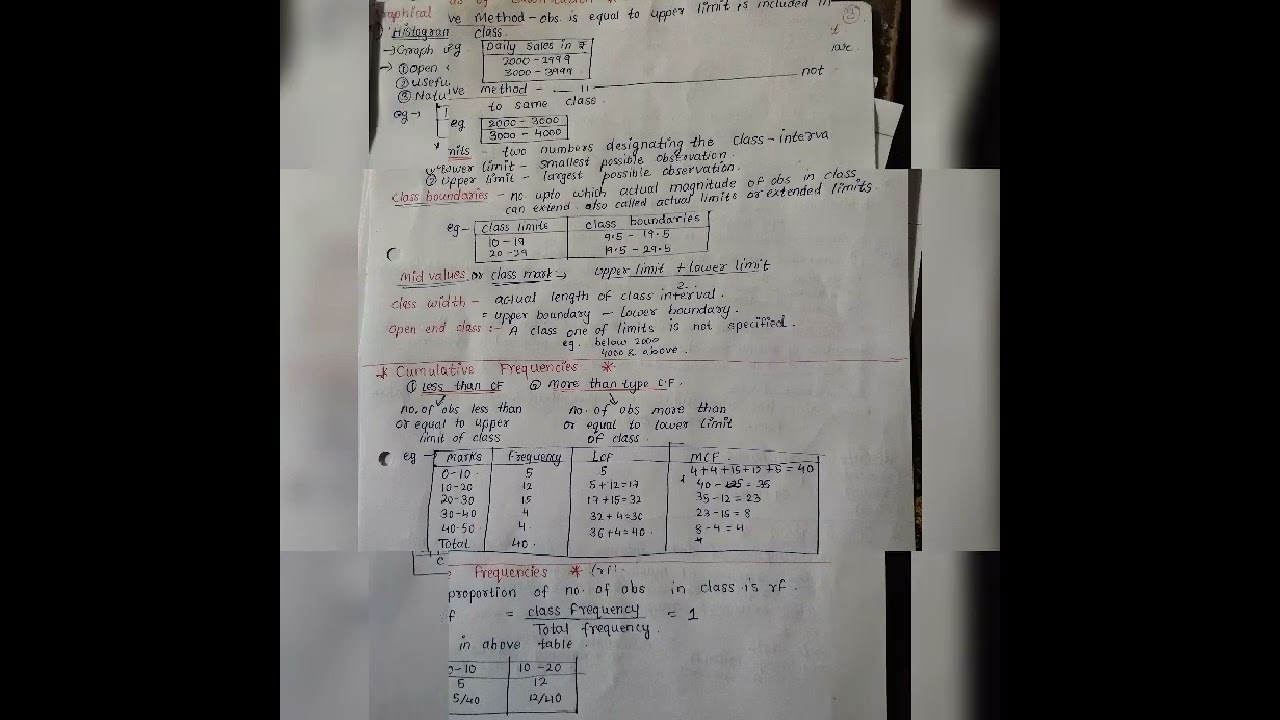 as of
Graphical ve Method - obs is equal to upper limit is included in
Histogram class.
→ Graph eg Daily Sales in ₹
2000 - 2999
→ ① Open 3000 - 3999
② Usefu
③ Nat usive Method - — 11 — not
eg → to same class.
eg 2000 - 3000
3000 - 4000
* mits - two numbers designating the class - interva
Lower limit - smallest possible observation.
② Upper limit - largest possible observation.
Class boundaries - no. upto which actual magnitude of obs in class
can extend. also called actual limits or extended limits.
eg - class limits class boundaries
10 - 19 9.5 - 19.5
20 - 29 19.5 - 29.5
Mid values or class mark → upper limit + lower limit
2
class width - actual length of class interval.
= upper boundary - Lower boundary.
open end class :- A class one of limits is not specified.
eg. below 2000
4000 & above.
* Cumulative Frequencies *
① Less than CF ② More than type C.F.
no. of obs less than no. of obs more than
or equal to upper or equal to lower limit
limit of class of class.
eg - Marks Frequency LCF MCF
0-10 5 5 4+4+15+12+5 = 40
10-20 12 5+12=17 40 - 5 = 35
20-30 15 17+15=32 35-12 = 23
30-40 4 32+4=36 23-15 = 8
40-50 4 36+4=40 8-4 = 4
Total 40
Frequencies * (rf).
proportion of no. of obs in class is rf.
f = class frequency = 1
Total frequency.
in above table.
0-10 10-20
5 12
5/40 12/40